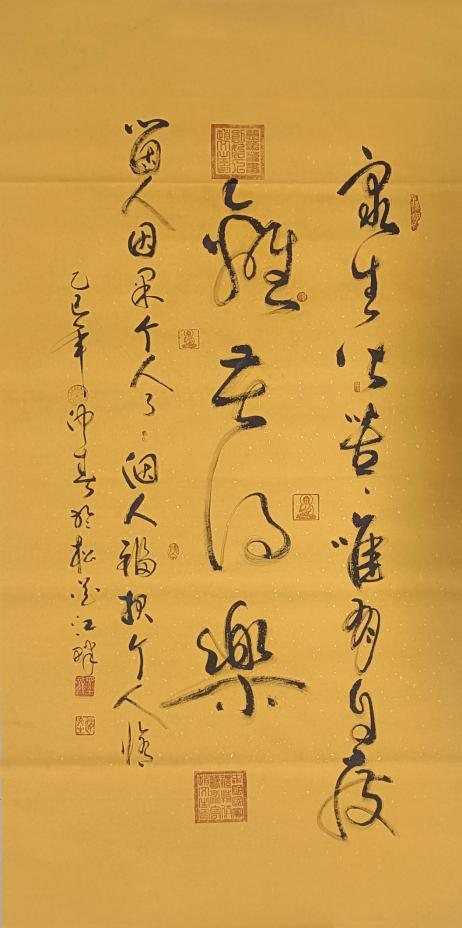 众生皆苦唯有自度
離苦得樂
個人因果个人了個人福报个人修
乙巳年仲春於松花江畔